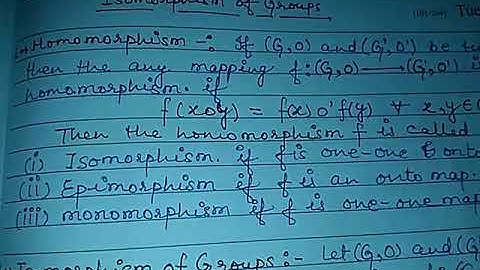 Isomorphism of Groups
Tue
Homomorphism -: If (G,0) and (G',0') be
then the any mapping f:(G,0) → (G',0') i
homomorphism. if
f(xoy) = f(x)o'f(y) ∀ x,y∈
Then the homomorphism f is called
(i) Isomorphism. if f is one-one & onto
(ii) Epimorphism if f is an onto map.
(iii) monomorphism if f is one-one map
morphism of Groups :- Let (G,0) and (G